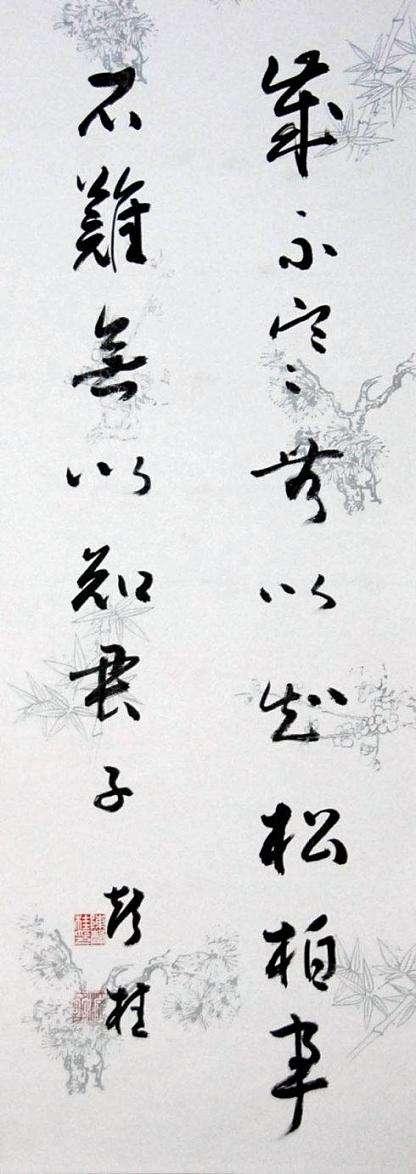 岁不寒无以知松柏事
不難無以知君子 彭桂